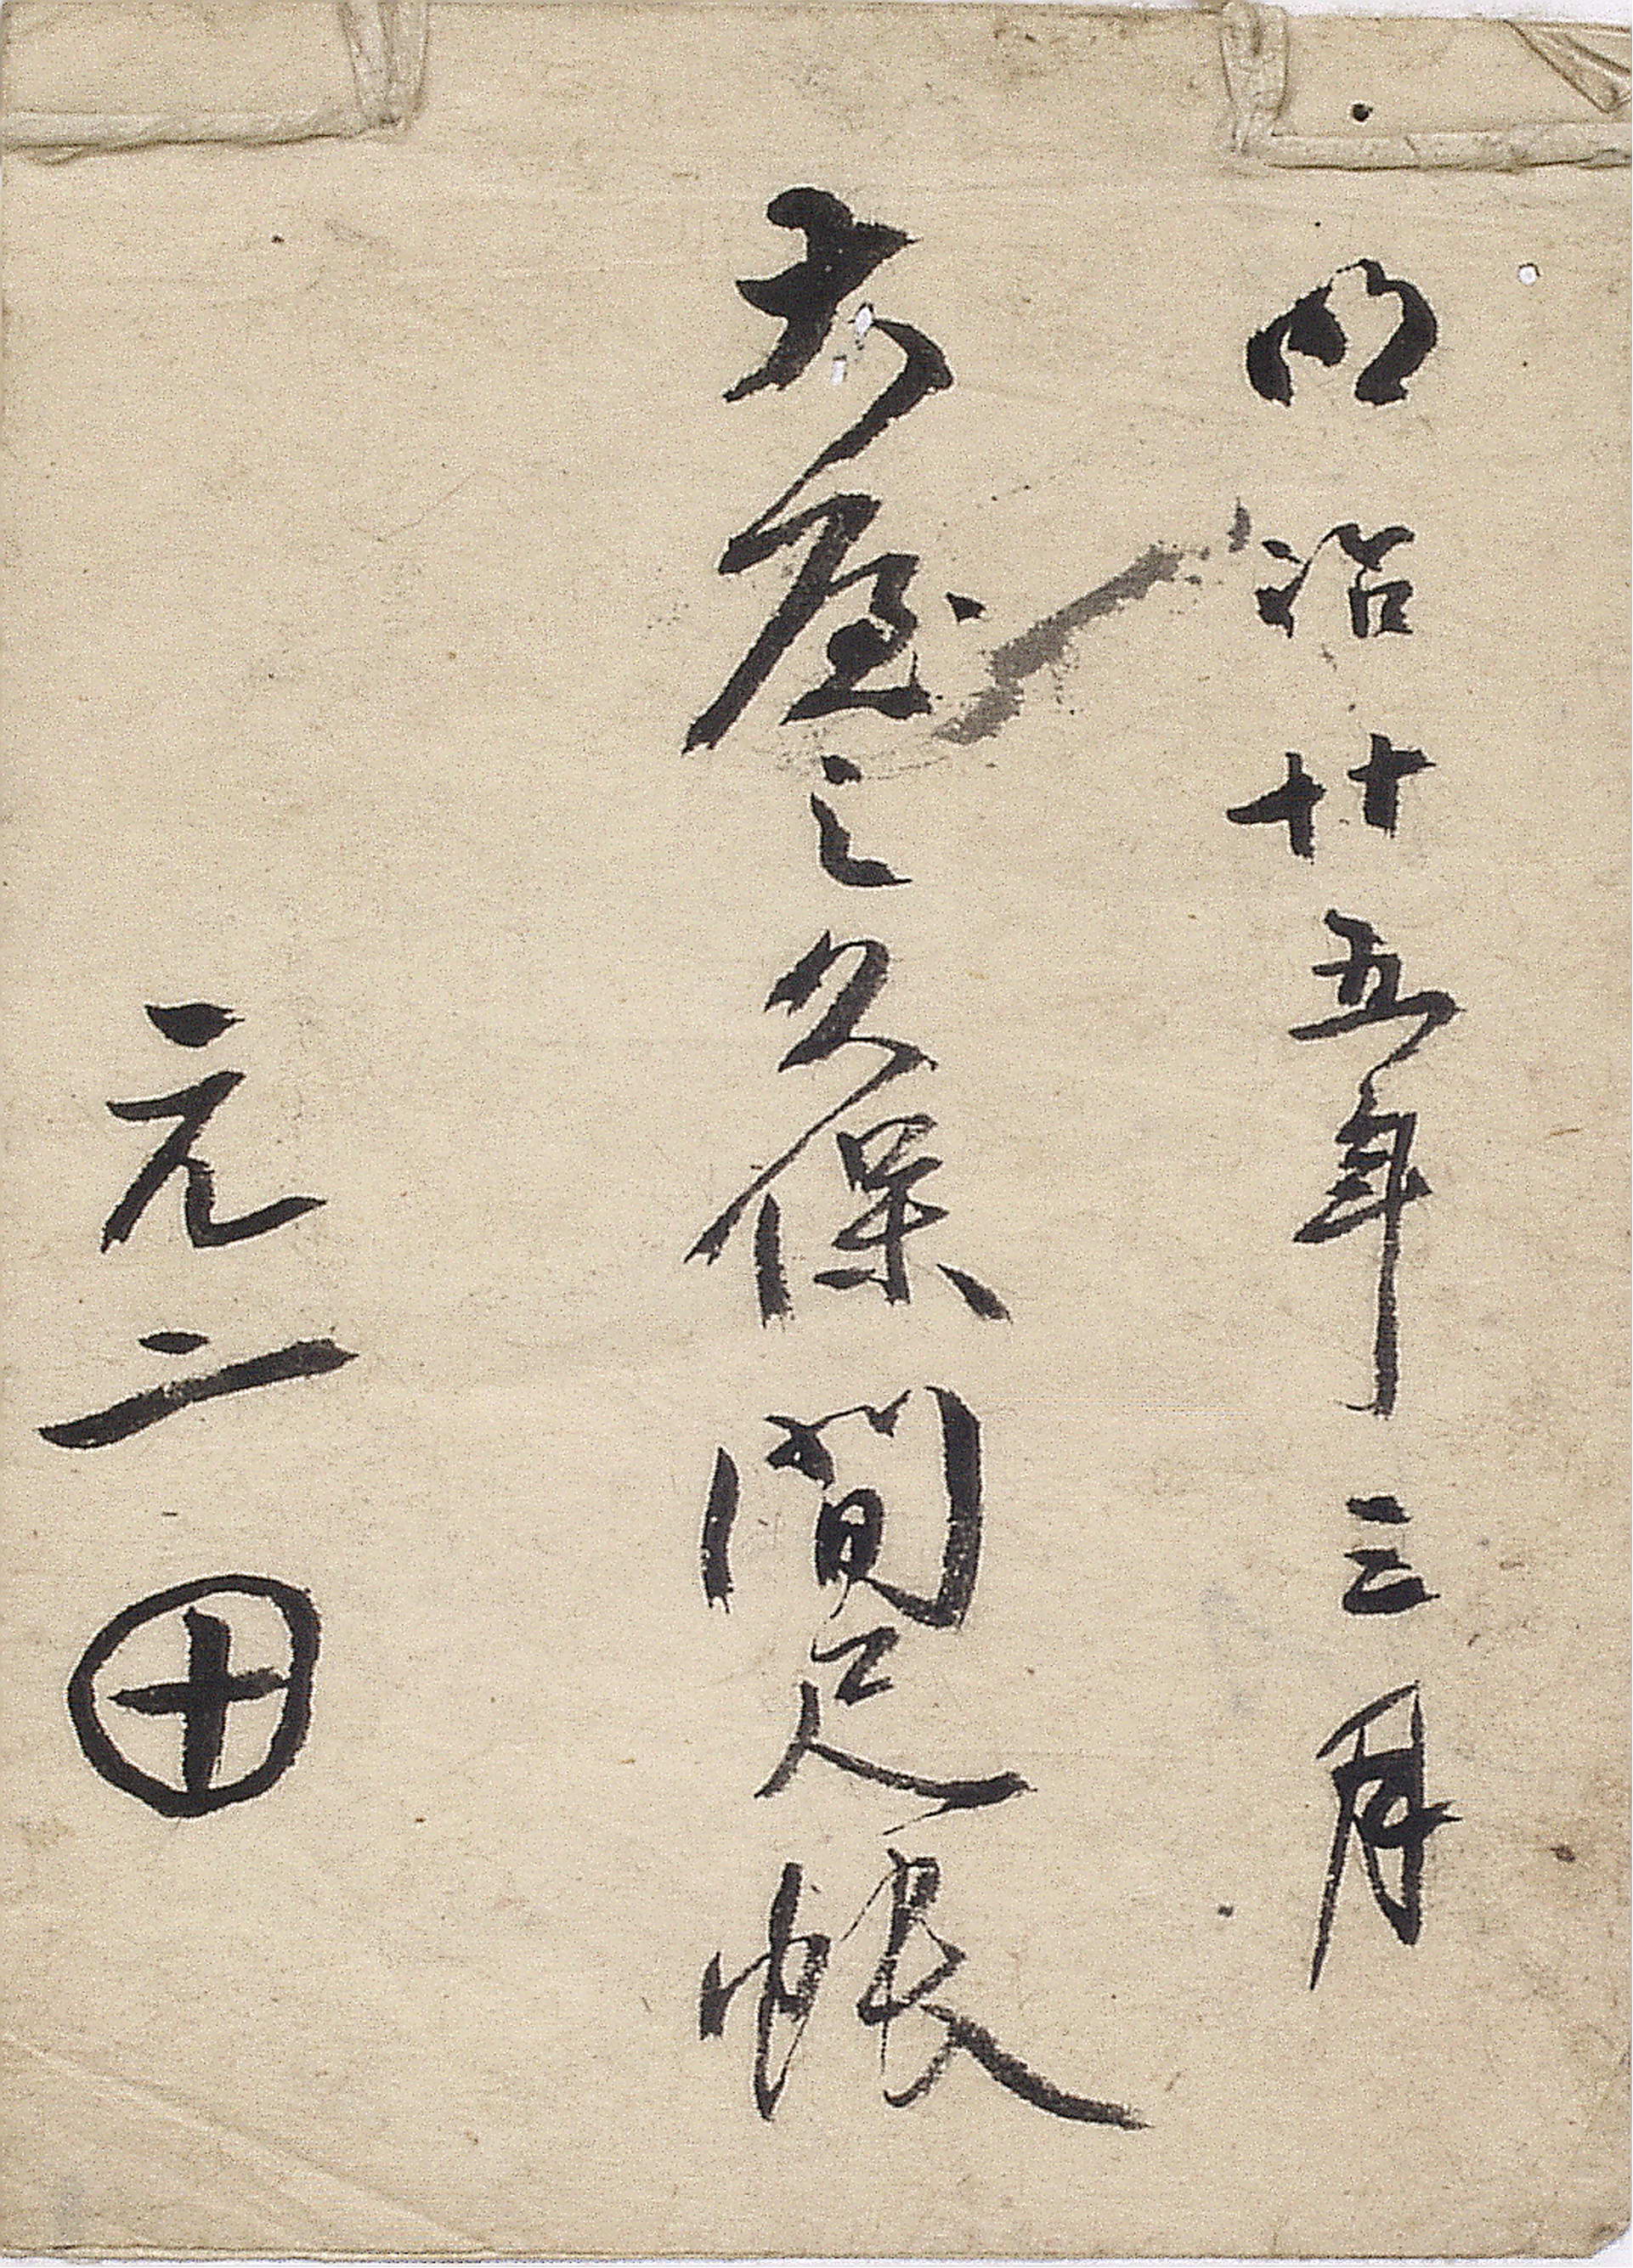 明治廿五年三月
大屋之久保間足帳
元二 ㊉